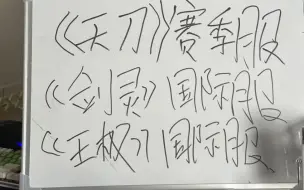 《天刀》赛季服
《剑灵》国际服
《王权》国际服